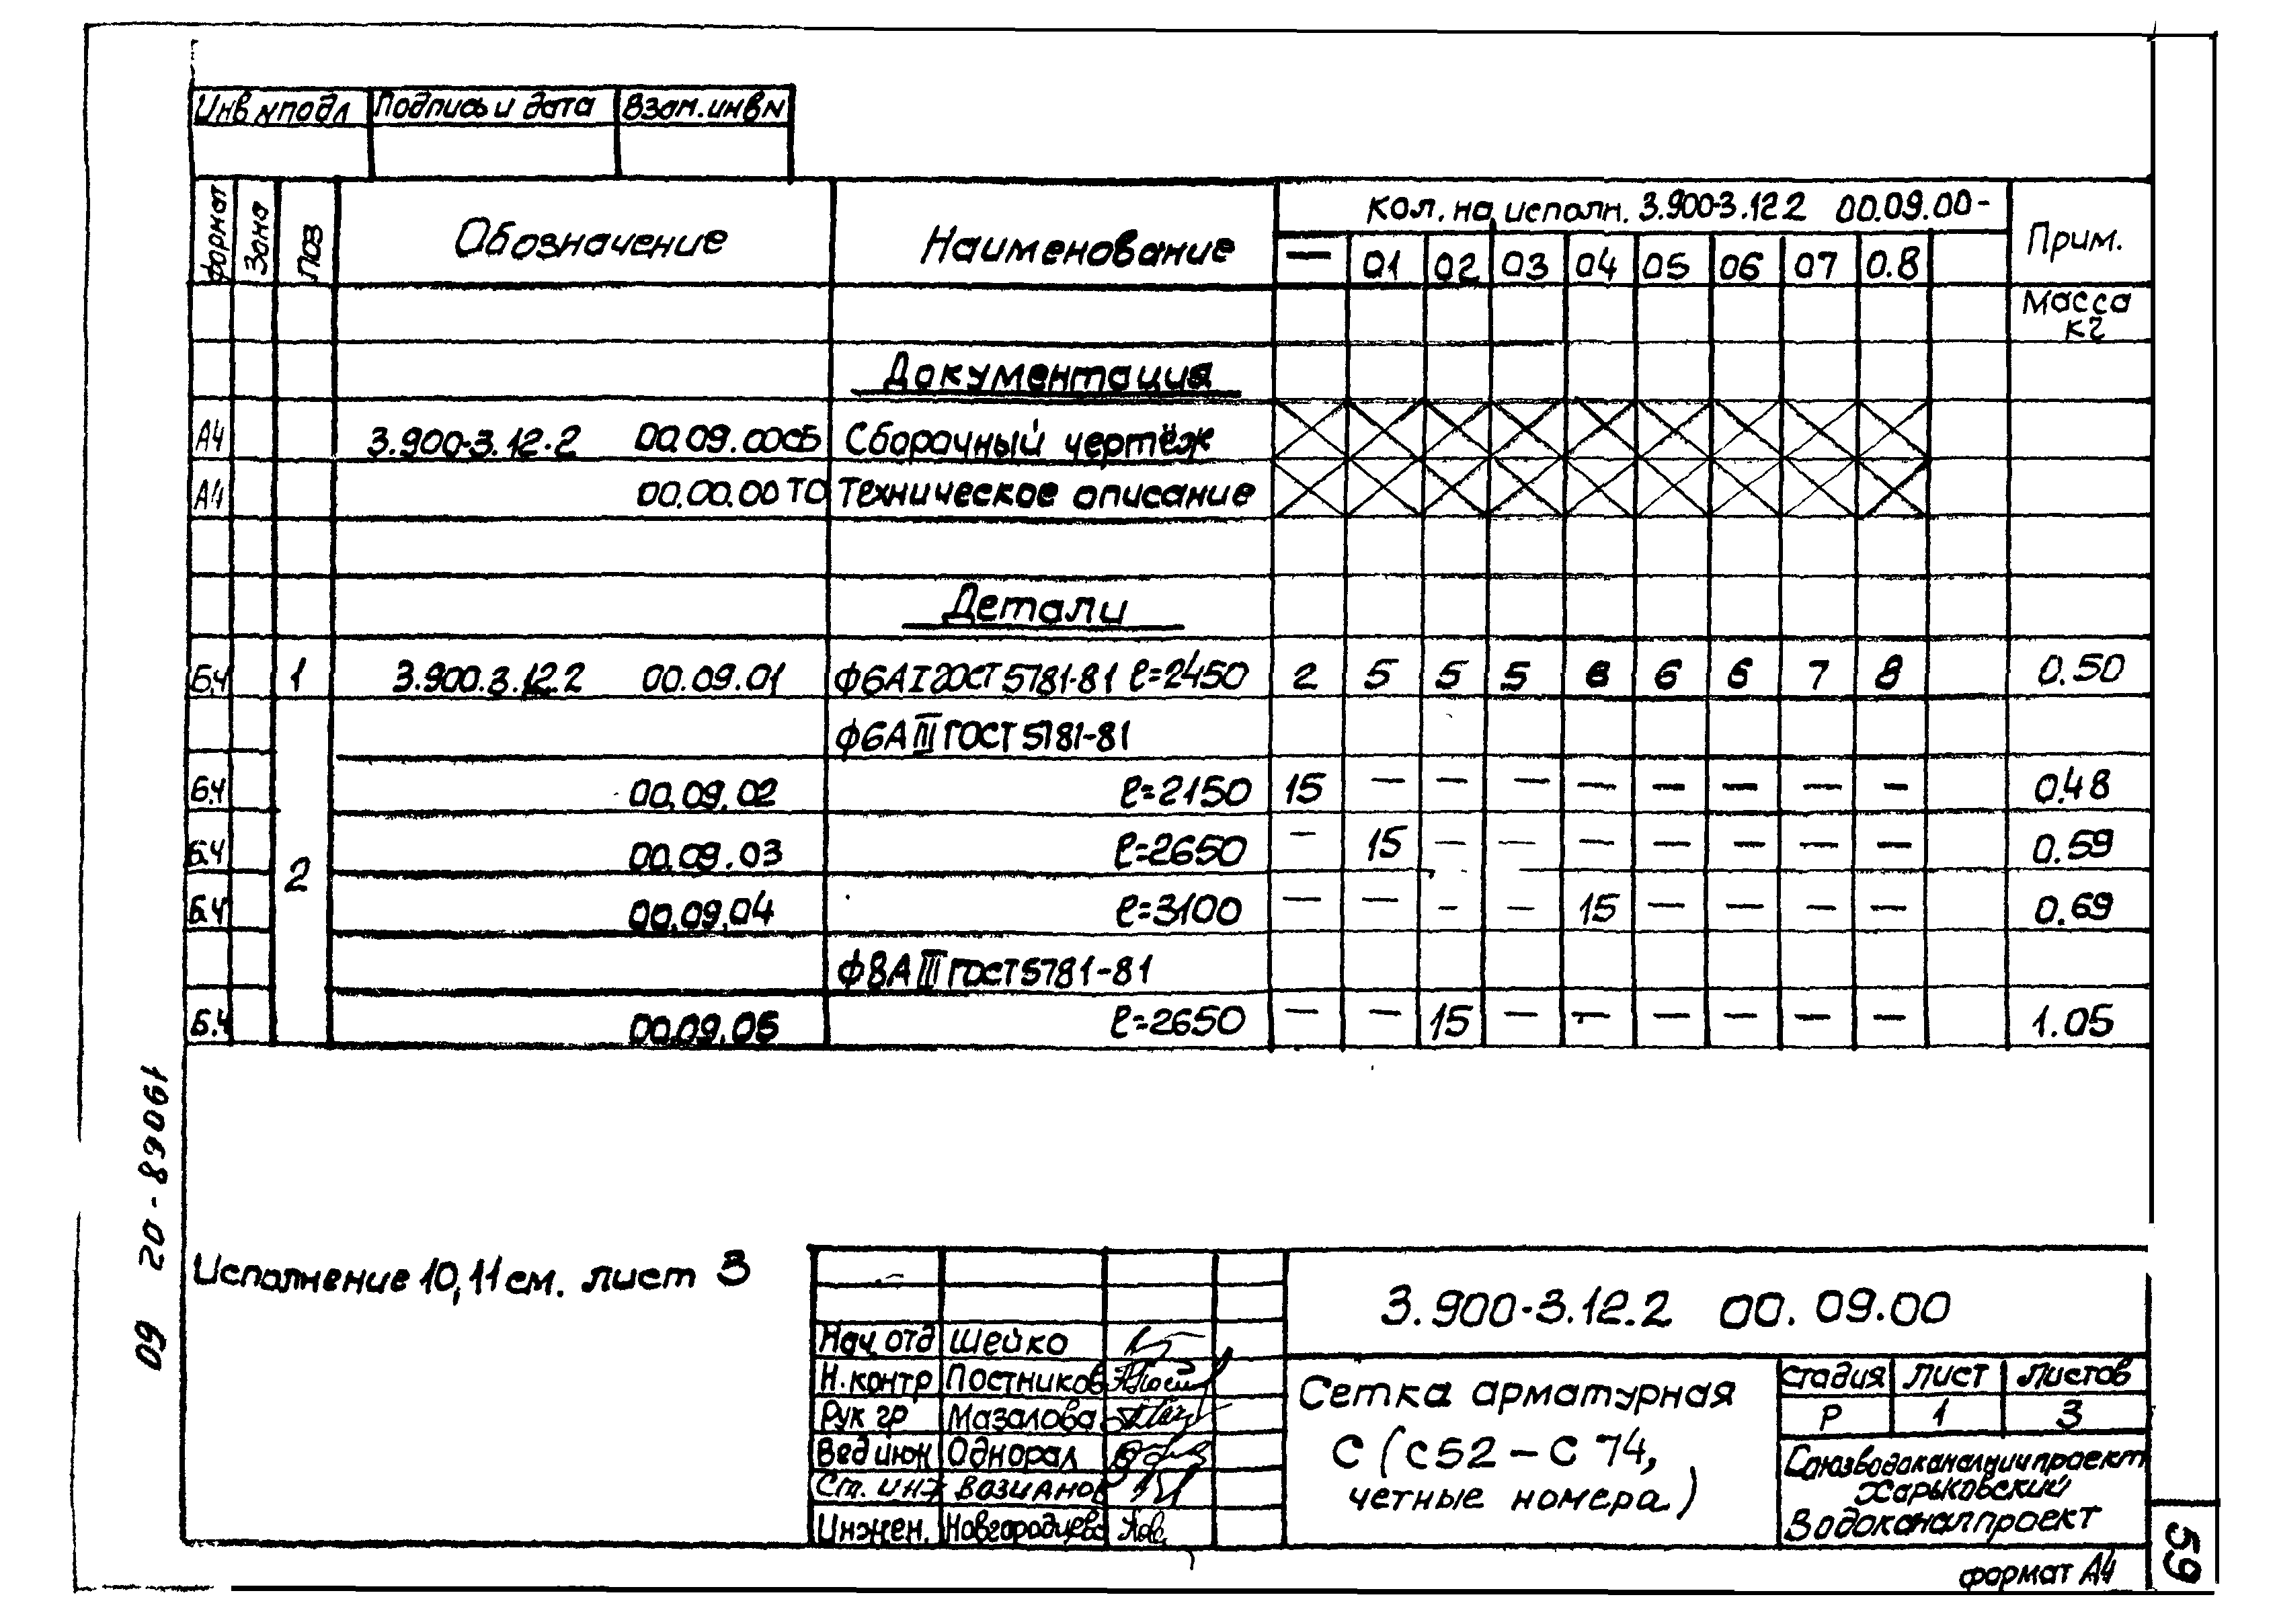 Инв № подл Подпись и дата Взам. инв №
Формат Зона Поз Обозначение Наименование Кол. на исполн. 3.900-3.12 2 00.09.00- Прим.
— 01 02 03 04 05 06 07 0.8
Масса кг
Документация
А4 3.900-3.12.2 00.09.00СБ Сборочный чертёж
А4 00.00.00 ТО Техническое описание
Детали
Б.Ч 1 3.900.3.12.2 00.09.01 ф6АI ГОСТ 5781-81 ℓ=2450 2 5 5 5 6 6 6 7 8 0.50
ф6А III ГОСТ 5781-81
Б.Ч 00.09.02 ℓ=2150 15 — — — — — — — — 0.48
Б.Ч 00.09.03 ℓ=2650 — 15 — — — — — — — 0.59
2
Б.Ч 00.09.04 ℓ=3100 — — — — 15 — — — — 0.69
ф8А III ГОСТ 5781-81
Б.Ч 00.09.05 ℓ=2650 — — 15 — — — — — — 1.05
19068-02 60
Исполнение 10,11 см. лист 3
3.900-3.12.2 00.09.00
Нач отд Шейко
Н. контр Постников
Рук гр Мазалова
Вед инж Однорал
Ст. инж Вазианов
Инжен.
Сетка арматурная
С (С52 – С 74,
четные номера)
Стадия Лист Листов
Р 1 3
Союзводоканалниипроект
Харьковский
Водоканалпроект
формат А4
59